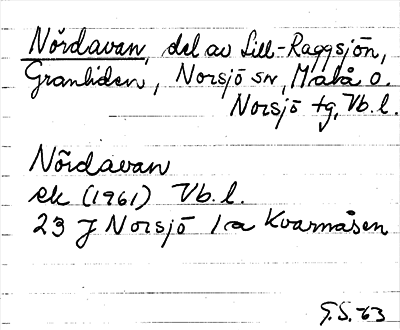 Nördavan, del av Lill-Raggsjön,
Granliden, Norsjö sn, Malå o.
Norsjö tg, Vb. l.
Nördavan
ek (1961) Vb. l.
23 J Norsjö 1a Kvarnåsen
G.S. 63